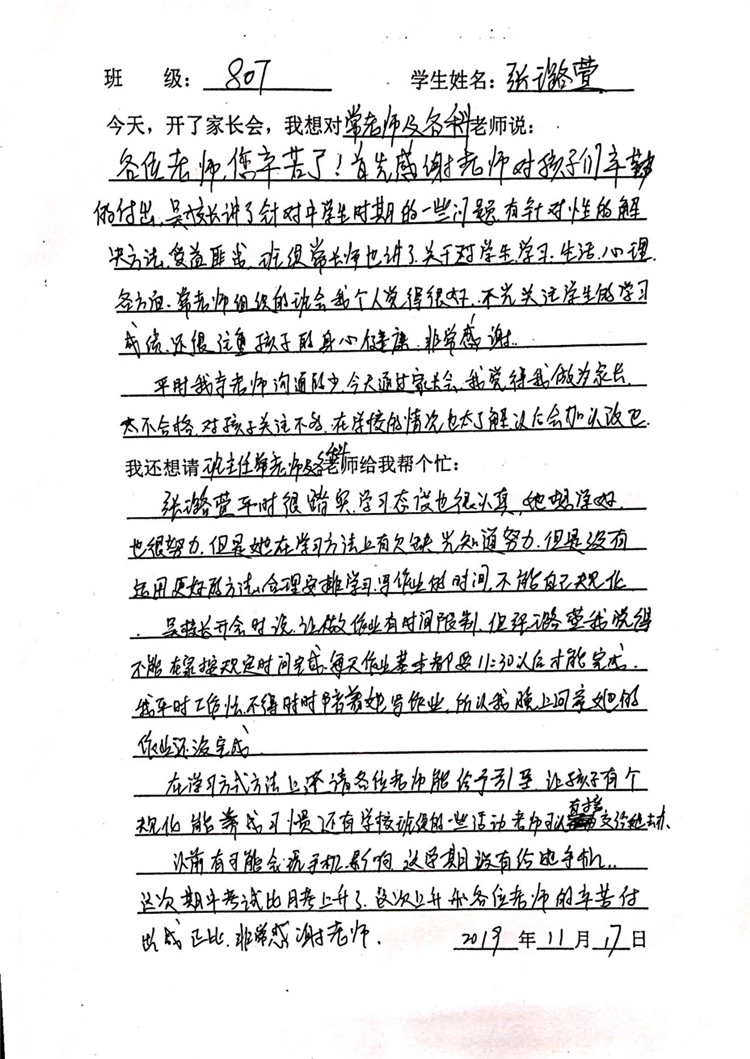 班 级: 807 学生姓名: 张璐萱
今天，开了家长会，我想对常老师及各科老师说:
各位老师,您辛苦了!首先感谢老师对孩子们辛勤
的付出,吴校长讲了针对中学生时期的一些问题,有针对性的解
决方法,受益匪浅,班级常老师也讲了关于对学生学习.生活.心理.
各方面.常老师组织的班会我个人觉得很好.不光关注学生的学习
成绩.还很注重孩子的身心健康.非常感谢..
平时我与老师沟通的少.今天通过家长会.我觉得我做为家长
太不合格.对孩子关注不够.在学校的情况也太了解以后会加以改
我还想请班主任常老师及各科老师给我帮个忙:
张璐萱平时很踏实,学习态度也很认真,她想学好.
也很努力.但是她在学习方法上有欠缺光知道努力.但是没有
运用更好的方法.合理安排学习.写作业的时间.不能自己规化
.吴校长开会时说.让做作业有时间限制.但张璐萱我觉得
不能在家按规定时间完成.每天作业基本都要11:30以后才能完成.
我平时工作忙.不得时时陪着她写作业.所以我晚上回家她的
作业还没完成.
在学习方式方法上还请各位老师能给予引导.让孩子有个
规化能养成习惯.还有学校班级的一些活动老师可以直接交给她去办.
以前有可能会玩手机影响.这学期没有给她手机..
这次期中考试比月考上升了.这次上升和各位老师的辛苦付
出成正比.非常感谢老师.
2019 年 11 月 17 日